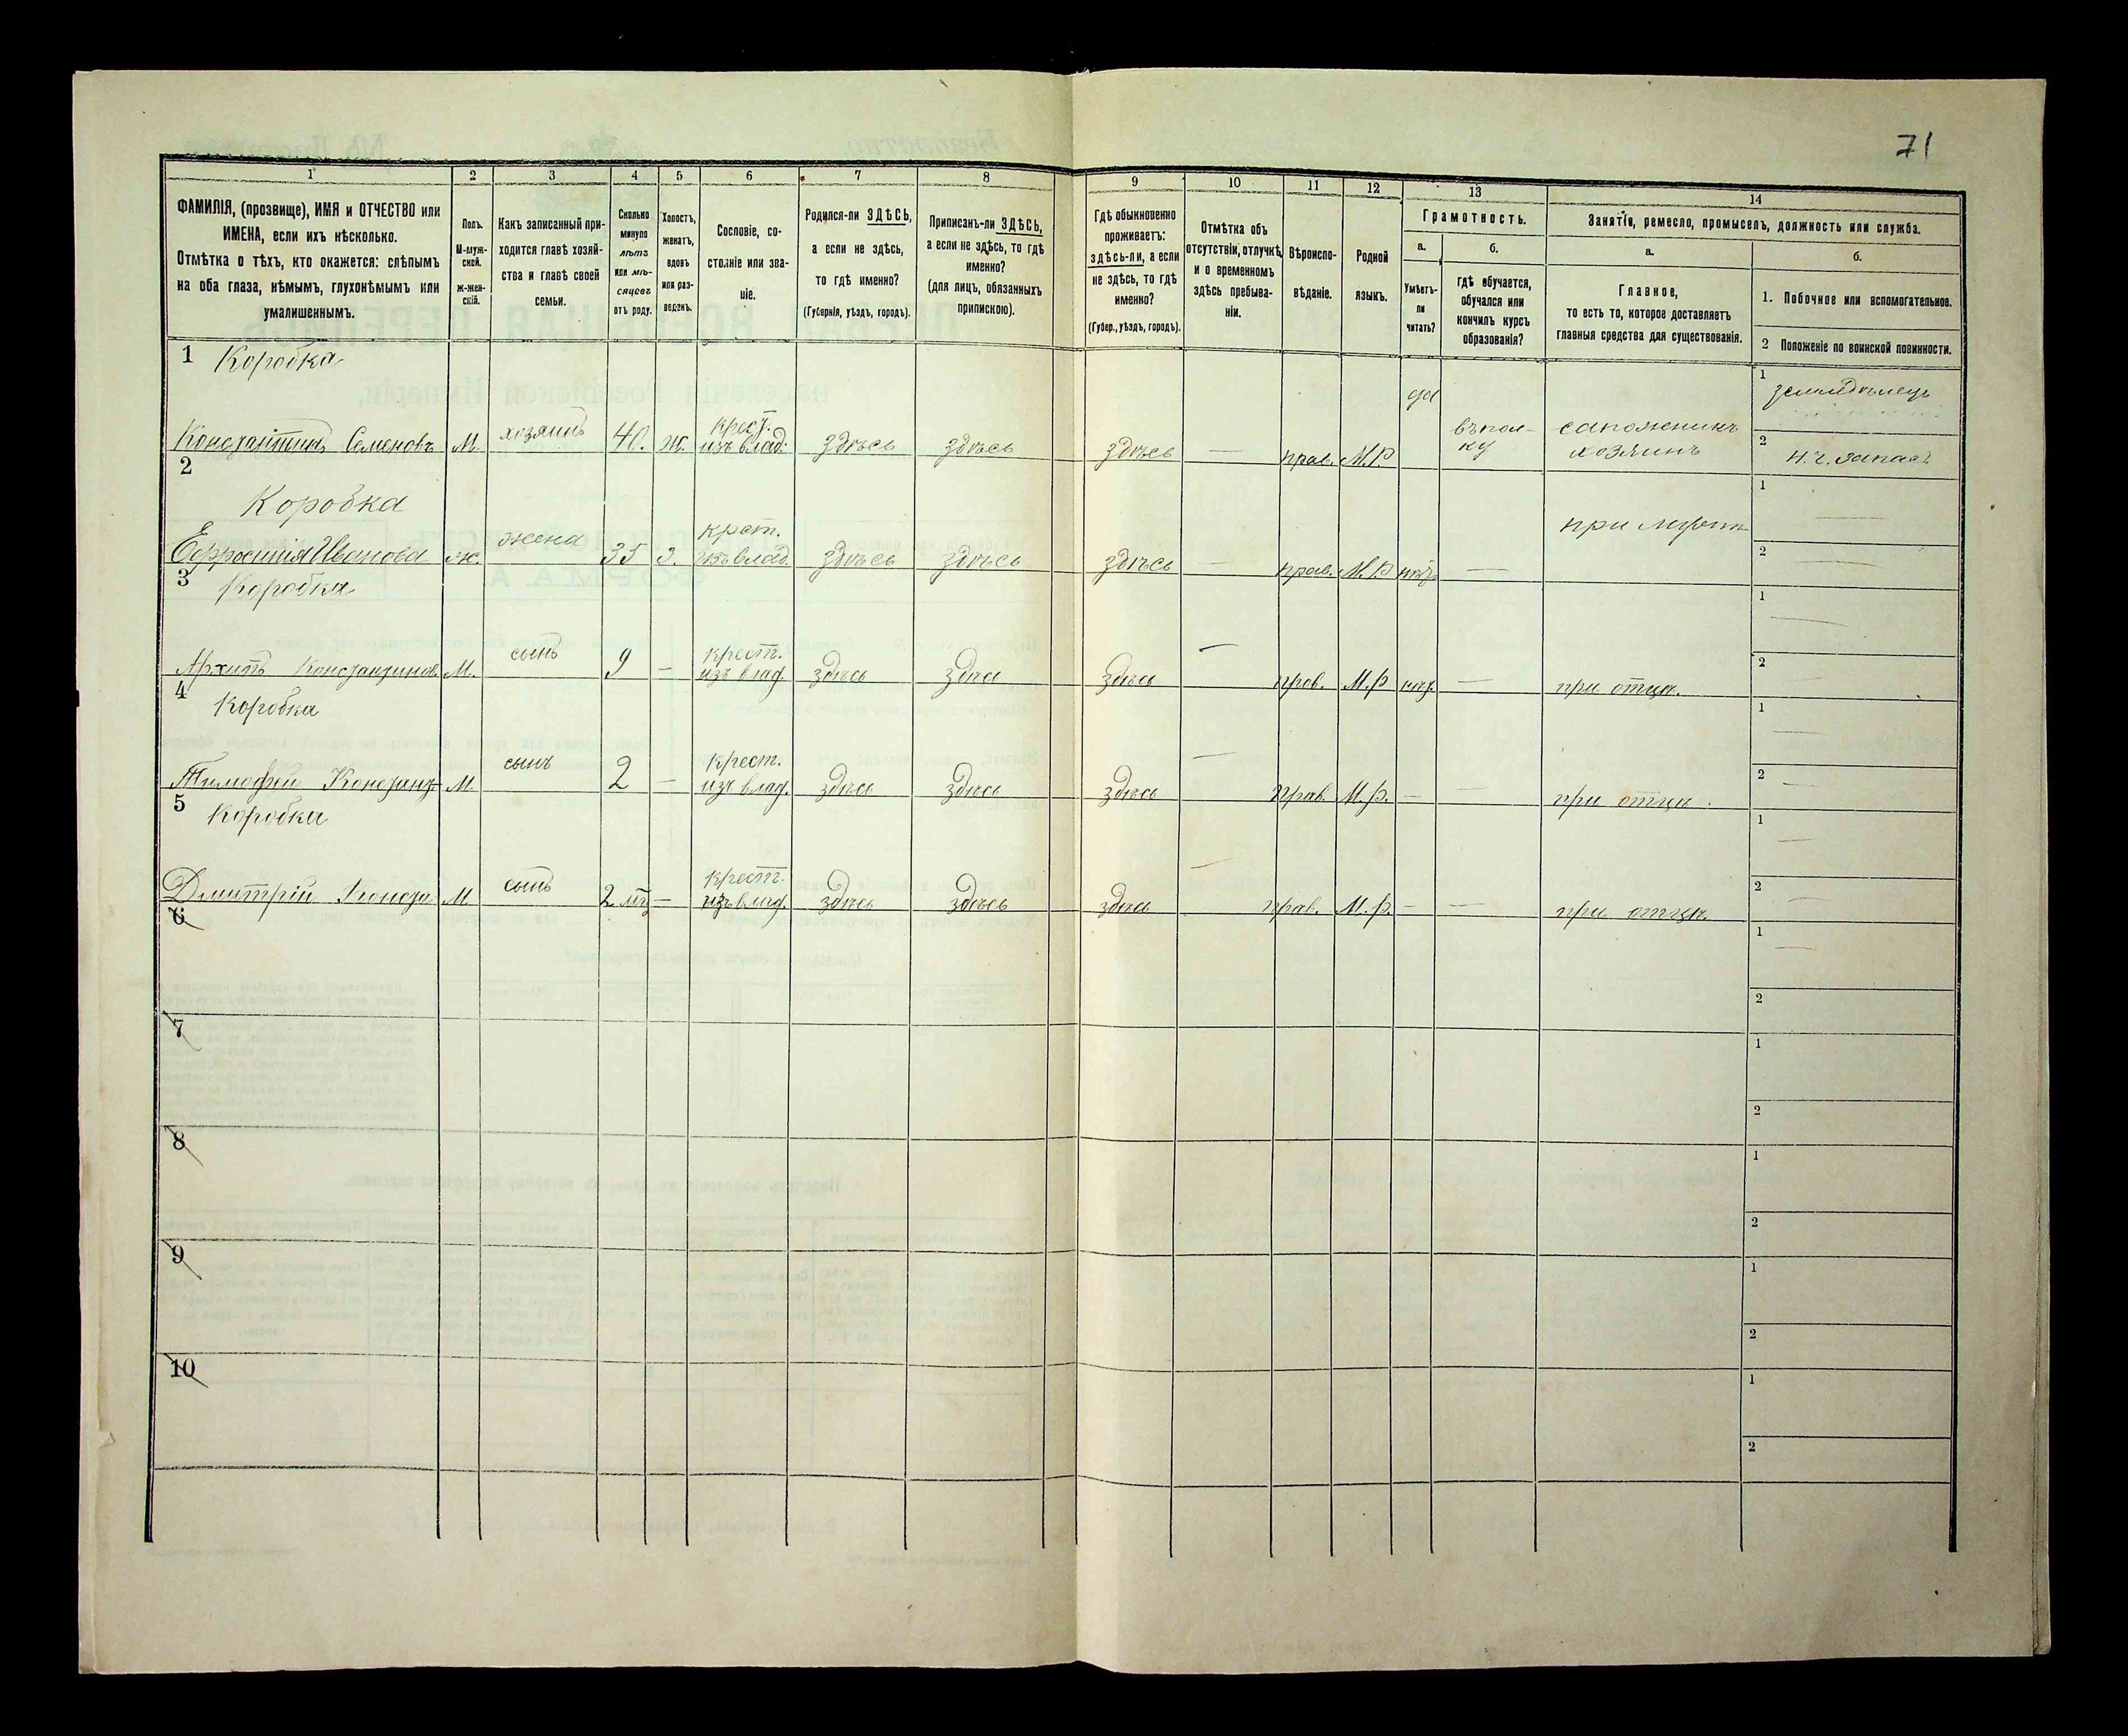 71
1
2
3
4
5
6
7
8
9
10
11
12
13
14
ФАМИЛІЯ, (прозвище), ИМЯ и ОТЧЕСТВО или
ИМЕНА, если ихъ нѣсколько.
Отмѣтка о тѣхъ, кто окажется: слѣпымъ
на оба глаза, нѣмымъ, глухонѣмымъ или
умалишеннымъ.
Полъ.
М-муж-
ской.
ж-жен-
скій.
Какъ записанный при-
ходится главѣ хозяй-
ства и главѣ своей
семьи.
Сколько
минуло
лѣтъ
или мѣ-
сяцевъ
отъ роду.
Холостъ,
женатъ,
вдовъ
или раз-
веденъ.
Сословіе, со-
стояніе или зва-
ніе.
Родился-ли ЗДѢСЬ,
а если не здѣсь,
то гдѣ именно?
(Губернія, уѣздъ, городъ).
Приписанъ-ли ЗДѢСЬ,
а если не здѣсь, то гдѣ
именно?
(для лицъ, обязанныхъ
припискою).
Гдѣ обыкновенно
проживаетъ:
здѣсь-ли, а если
не здѣсь, то гдѣ
именно?
(Губер., уѣздъ, городъ).
Отмѣтка объ
отсутствіи, отлучкѣ,
и о временномъ
здѣсь пребыва-
ніи.
Вѣроиспо-
вѣданіе.
Родной
языкъ.
Грамотность.
а.
Умѣетъ-
ли
читать?
б.
Гдѣ обучается,
обучался или
кончилъ курсъ
образованія?
Занятія, ремесло, промыселъ, должность или служба.
а.
Главное,
то есть то, которое доставляетъ
главныя средства для существованія.
б.
1. Побочное или вспомогательное.
2 Положеніе по воинской повинности.
1 Коробка
Константинъ Семеновъ М. хозяинъ 40. ж. крест. изъ влад. здѣсь здѣсь здѣсь — прав. М.Р. да въ пол-
ку сапожникъ
хозяинъ
1 земледѣлецъ
2 н.ч. запаса
2
Коробка
Ефросинія Иванова ж. жена 35 з. крест. изъ влад. здѣсь здѣсь здѣсь — прав. М.Р нѣт — при мужѣ 1 — 2 —
3 Коробка
Архипъ Константинов. М. сынъ 9 — крест. изъ влад. здѣсь здѣсь здѣсь — прав. М.Р нѣт. — при отцѣ. 1 — 2 —
4 Коробка
Тимофей Констант М. сынъ 2 — крест. изъ влад. здѣсь здѣсь здѣсь — прав. М.Р. — — при отцѣ. 1 — 2 —
5 Коробка
Дмитрій Конста М сынъ 2 мѣ — крест. изъ влад. здѣсь здѣсь здѣсь — прав. М.Р. — — при отцѣ. 1 — 2 —
6 1 — 2
7 1 2
8 1 2
9 1 2
10 1 2